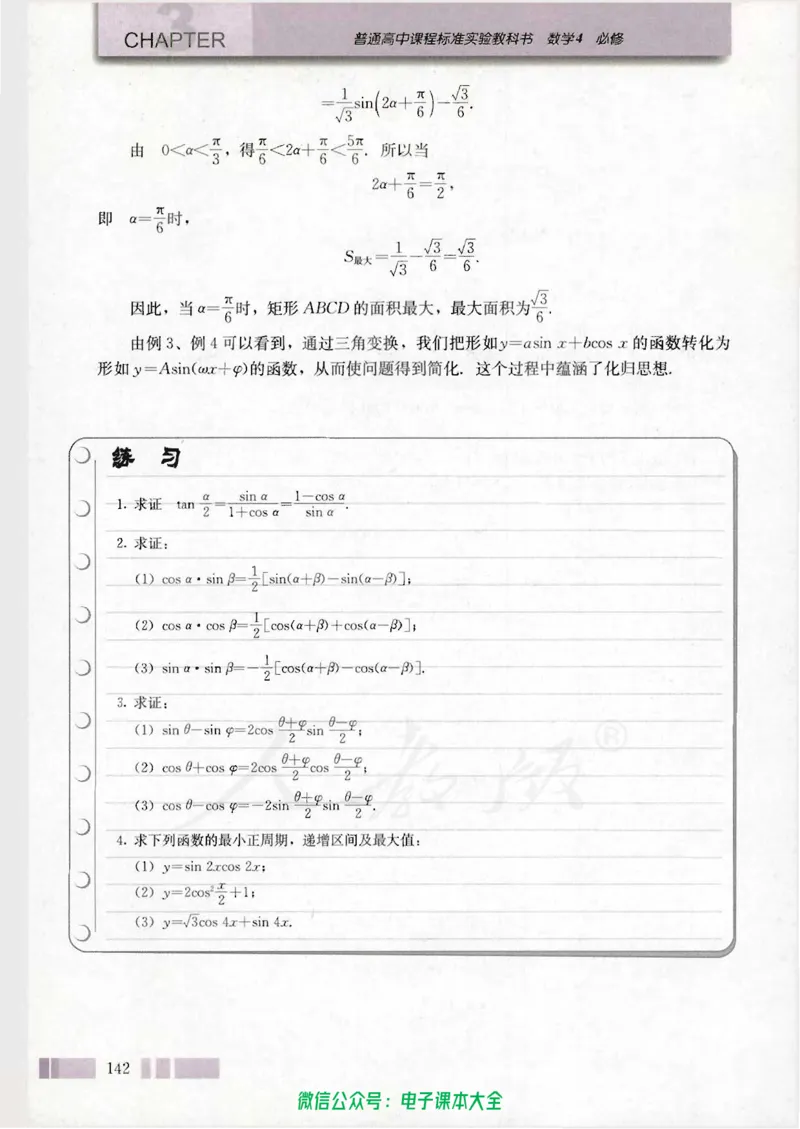 3
CHAPTER 普通高中课程标准实验教科书 数学4 必修
=1/√3 sin(2α+π/6)-√3/6.
由 0<α<π/3，得π/6<2α+π/6<5π/6. 所以当
2α+π/6=π/2，
即 α=π/6时，
S最大=1/√3-√3/6=√3/6.
因此，当α=π/6时，矩形ABCD的面积最大，最大面积为√3/6.
由例3、例4可以看到，通过三角变换，我们把形如y=asin x+bcos x的函数转化为
形如y=Asin(ωx+φ)的函数，从而使问题得到简化. 这个过程中蕴涵了化归思想.
练 习
1. 求证 tan α/2=sin α/(1+cos α)=(1-cos α)/sin α.
2. 求证：
(1) cos α·sin β=1/2[sin(α+β)-sin(α-β)]；
(2) cos α·cos β=1/2[cos(α+β)+cos(α-β)]；
(3) sin α·sin β=-1/2[cos(α+β)-cos(α-β)].
3. 求证：
(1) sin θ-sin φ=2cos (θ+φ)/2 sin (θ-φ)/2；
(2) cos θ+cos φ=2cos (θ+φ)/2 cos (θ-φ)/2；
(3) cos θ-cos φ=-2sin (θ+φ)/2 sin (θ-φ)/2.
4. 求下列函数的最小正周期，递增区间及最大值：
(1) y=sin 2xcos 2x；
(2) y=2cos² x/2+1；
(3) y=√3cos 4x+sin 4x.
人教版®
142
微信公众号：电子课本大全